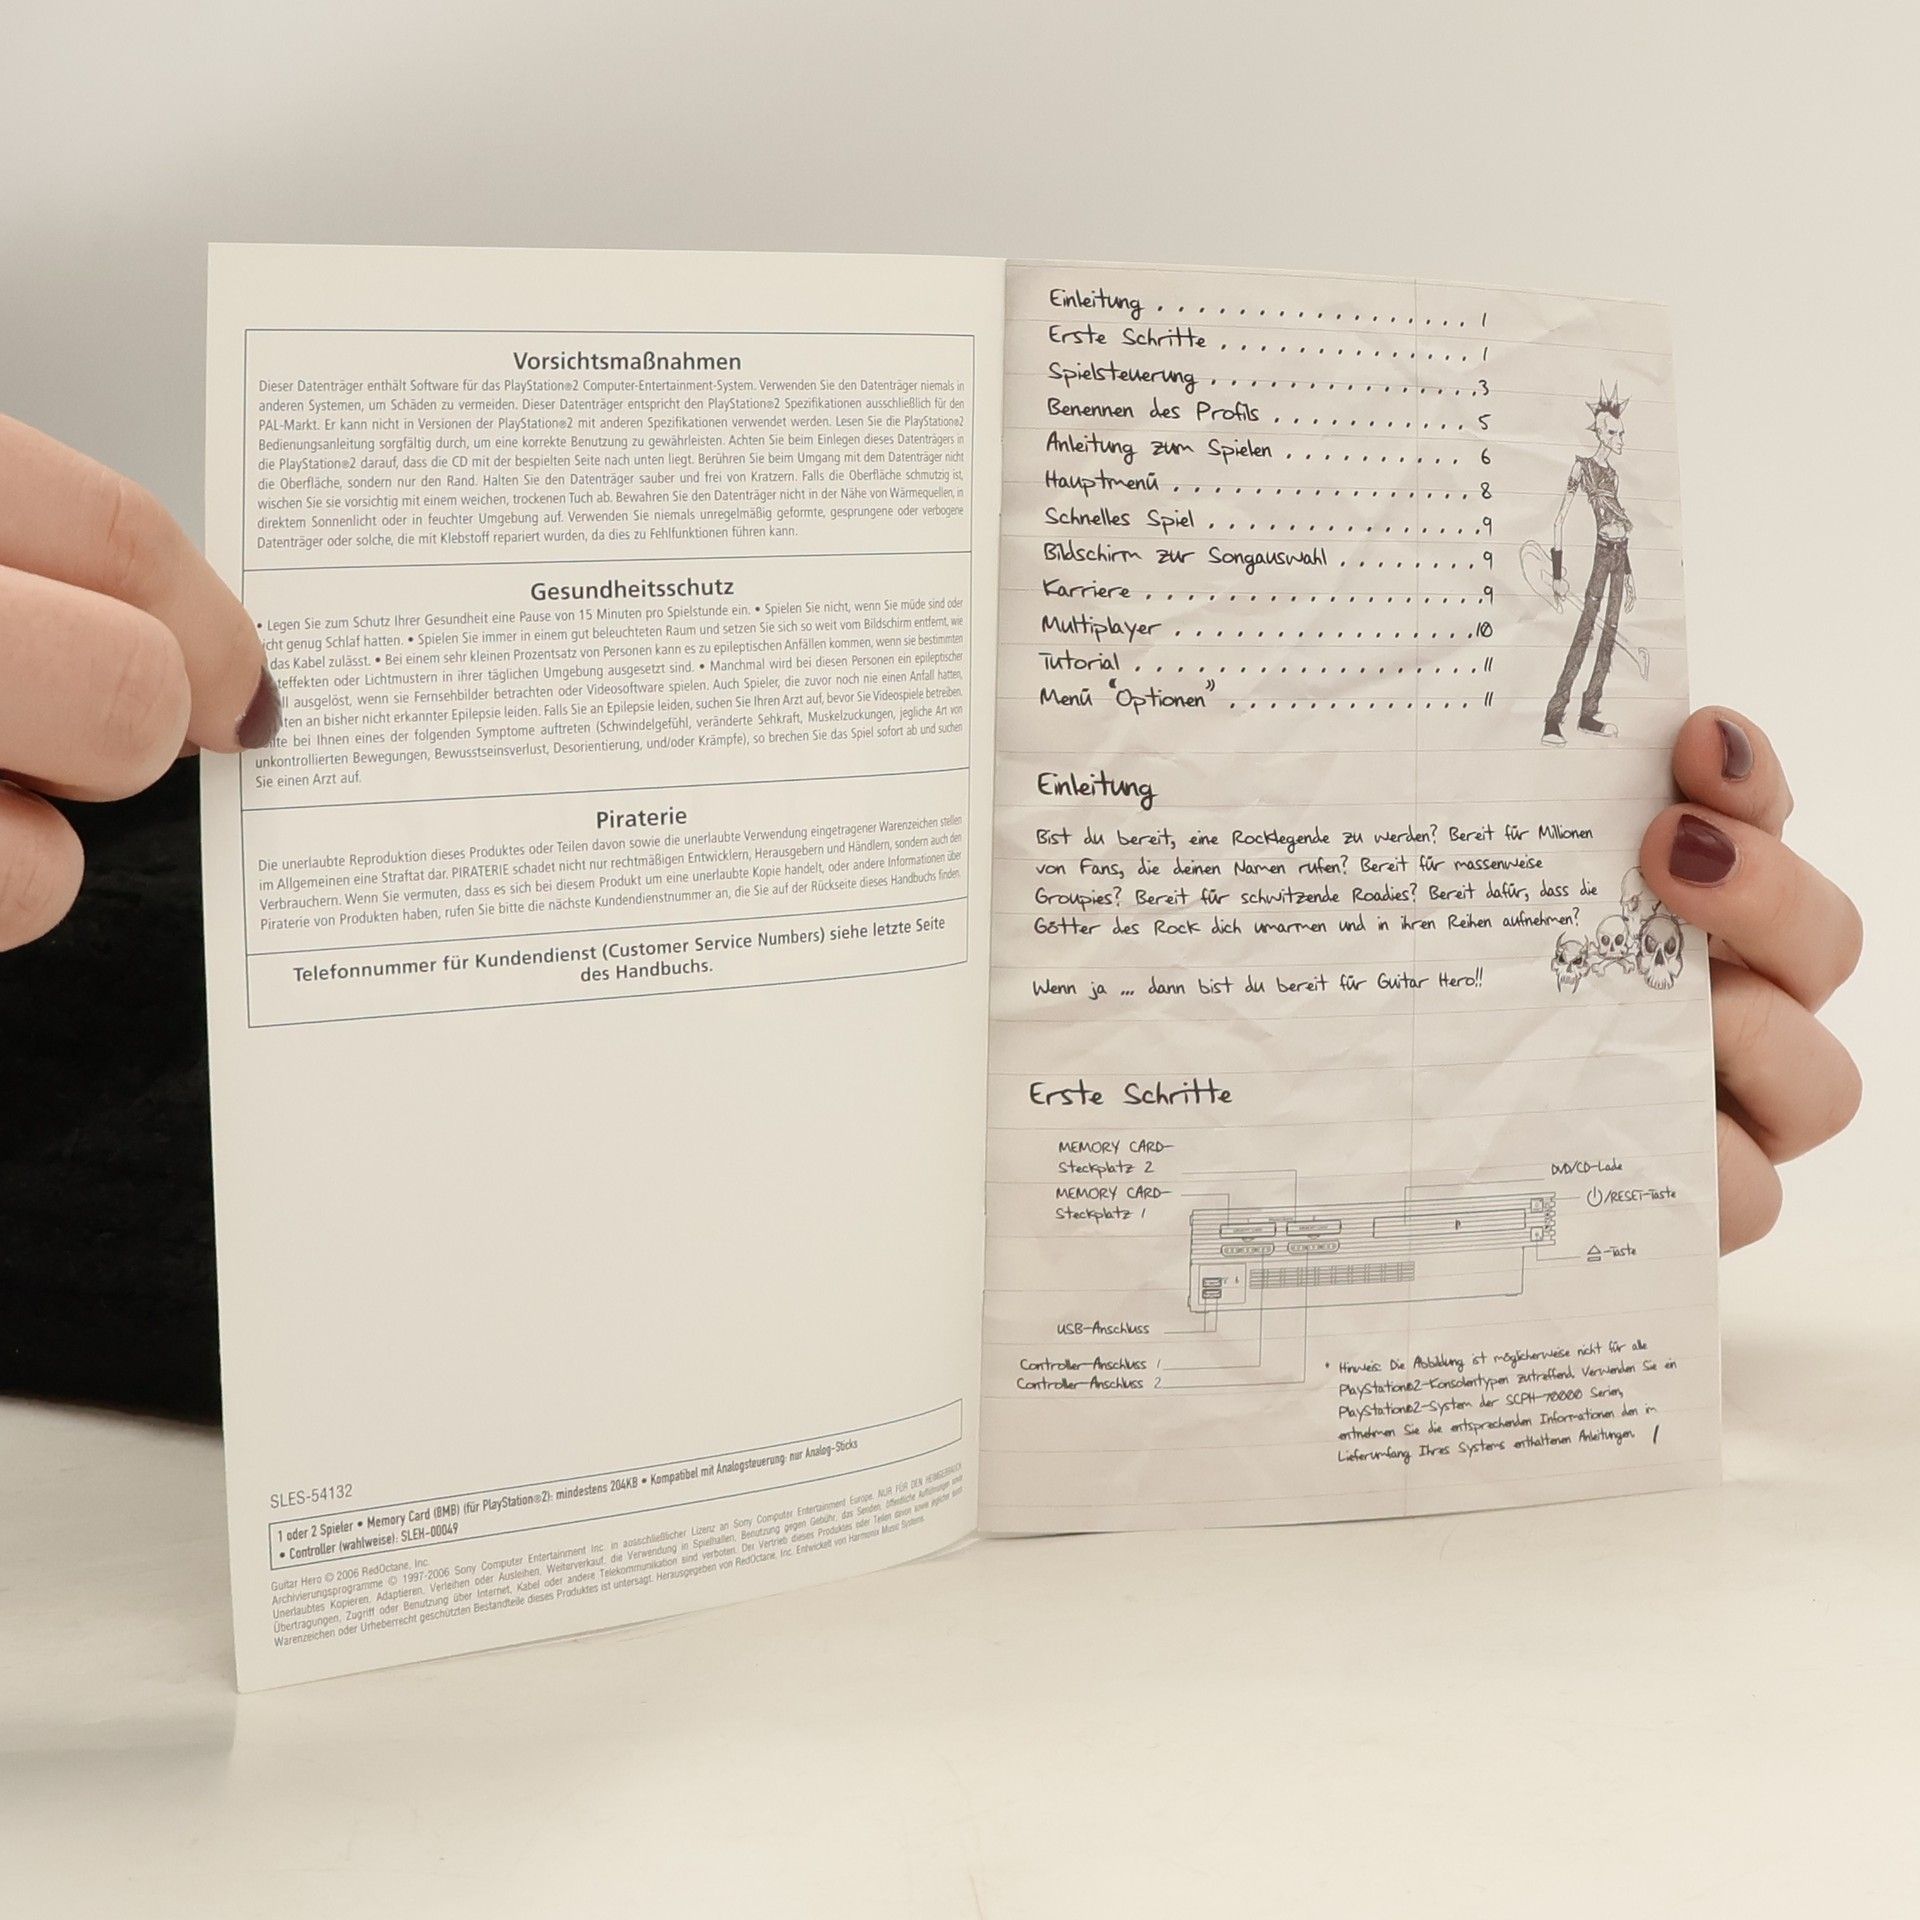 Vorsichtsmaßnahmen
Dieser Datenträger enthält Software für das PlayStation®2 Computer-Entertainment-System. Verwenden Sie den Datenträger niemals in
anderen Systemen, um Schäden zu vermeiden. Dieser Datenträger entspricht den PlayStation®2 Spezifikationen ausschließlich für den
PAL-Markt. Er kann nicht in Versionen der PlayStation®2 mit anderen Spezifikationen verwendet werden. Lesen Sie die PlayStation®2
Bedienungsanleitung sorgfältig durch, um eine korrekte Benutzung zu gewährleisten. Achten Sie beim Einlegen dieses Datenträgers in
die PlayStation®2 darauf, dass die CD mit der bespielten Seite nach unten liegt. Berühren Sie beim Umgang mit dem Datenträger nicht
die Oberfläche, sondern nur den Rand. Halten Sie den Datenträger sauber und frei von Kratzern. Falls die Oberfläche schmutzig ist,
wischen Sie sie vorsichtig mit einem weichen, trockenen Tuch ab. Bewahren Sie den Datenträger nicht in der Nähe von Wärmequellen, in
direktem Sonnenlicht oder in feuchter Umgebung auf. Verwenden Sie niemals unregelmäßig geformte, gesprungene oder verbogene
Datenträger oder solche, die mit Klebstoff repariert wurden, da dies zu Fehlfunktionen führen kann.
Gesundheitsschutz
• Legen Sie zum Schutz Ihrer Gesundheit eine Pause von 15 Minuten pro Spielstunde ein. • Spielen Sie nicht, wenn Sie müde sind oder
icht genug Schlaf hatten. • Spielen Sie immer in einem gut beleuchteten Raum und setzen Sie sich so weit vom Bildschirm entfernt, wie
das Kabel zulässt. • Bei einem sehr kleinen Prozentsatz von Personen kann es zu epileptischen Anfällen kommen, wenn sie bestimmten
teffekten oder Lichtmustern in ihrer täglichen Umgebung ausgesetzt sind. • Manchmal wird bei diesen Personen ein epileptischer
ll ausgelöst, wenn sie Fernsehbilder betrachten oder Videosoftware spielen. Auch Spieler, die zuvor noch nie einen Anfall hatten,
ten an bisher nicht erkannter Epilepsie leiden. Falls Sie an Epilepsie leiden, suchen Sie Ihren Arzt auf, bevor Sie Videospiele betreiben.
lte bei Ihnen eines der folgenden Symptome auftreten (Schwindelgefühl, veränderte Sehkraft, Muskelzuckungen, jegliche Art von
unkontrollierten Bewegungen, Bewusstseinsverlust, Desorientierung, und/oder Krämpfe), so brechen Sie das Spiel sofort ab und suchen
Sie einen Arzt auf.
Piraterie
Die unerlaubte Reproduktion dieses Produktes oder Teilen davon sowie die unerlaubte Verwendung eingetragener Warenzeichen stellen
im Allgemeinen eine Straftat dar. PIRATERIE schadet nicht nur rechtmäßigen Entwicklern, Herausgebern und Händlern, sondern auch den
Verbrauchern. Wenn Sie vermuten, dass es sich bei diesem Produkt um eine unerlaubte Kopie handelt, oder andere Informationen über
Piraterie von Produkten haben, rufen Sie bitte die nächste Kundendienstnummer an, die Sie auf der Rückseite dieses Handbuchs finden.
Telefonnummer für Kundendienst (Customer Service Numbers) siehe letzte Seite
des Handbuchs.
SLES-54132
1 oder 2 Spieler • Memory Card (8MB) (für PlayStation®2): mindestens 204KB • Kompatibel mit Analogsteuerung: nur Analog-Sticks
• Controller (wahlweise): SLEH-00049
Guitar Hero © 2006 RedOctane, Inc.
Archivierungsprogramme © 1997-2006 Sony Computer Entertainment Inc. in ausschließlicher Lizenz an Sony Computer Entertainment Europe. NUR FÜR DEN HEIMGEBRAUCH
Unerlaubtes Kopieren, Adaptieren, Verleihen oder Ausleihen, Weiterverkauf, die Verwendung in Spielhallen, Benutzung gegen Gebühr, das Senden, öffentliche Aufführungen sowie
Übertragungen, Zugriff oder Benutzung über Internet, Kabel oder andere Telekommunikation sind verboten. Der Vertrieb dieses Produktes oder Teilen davon sowie jeglicher durch
Warenzeichen oder Urheberrecht geschützten Bestandteile dieses Produktes ist untersagt. Herausgegeben von RedOctane, Inc. Entwickelt von Harmonix Music Systems.
Einleitung . . . . . . . . . . . . . . . . . 1
Erste Schritte . . . . . . . . . . . . . . 1
Spielsteuerung . . . . . . . . . . . . . . . 3
Benennen des Profils . . . . . . . . . . . 5
Anleitung zum Spielen . . . . . . . . . . 6
Hauptmenü . . . . . . . . . . . . . . . . 8
Schnelles Spiel . . . . . . . . . . . . . . . 9
Bildschirm zur Songauswahl . . . . . . . . 9
Karriere . . . . . . . . . . . . . . . . . . 9
Multiplayer . . . . . . . . . . . . . . . . 10
Tutorial . . . . . . . . . . . . . . . . . . 11
Menü "Optionen" . . . . . . . . . . . . . 11
Einleitung
Bist du bereit, eine Rocklegende zu werden? Bereit für Millionen
von Fans, die deinen Namen rufen? Bereit für massenweise
Groupies? Bereit für schwitzende Roadies? Bereit dafür, dass die
Götter des Rock dich umarmen und in ihren Reihen aufnehmen?
Wenn ja ... dann bist du bereit für Guitar Hero!!
Erste Schritte
MEMORY CARD-
Steckplatz 2
MEMORY CARD-
Steckplatz 1
DVD/CD-Lade
⏻/RESET-Taste
⏏-Taste
USB-Anschluss
Controller-Anschluss 1
Controller-Anschluss 2
* Hinweis: Die Abbildung ist möglicherweise nicht für alle
PlayStation®2-Konsolentypen zutreffend. Verwenden Sie ein
PlayStation®2-System der SCPH-70000 Serien,
entnehmen Sie die entsprechenden Informationen den im
Lieferumfang Ihres Systems enthaltenen Anleitungen.
1